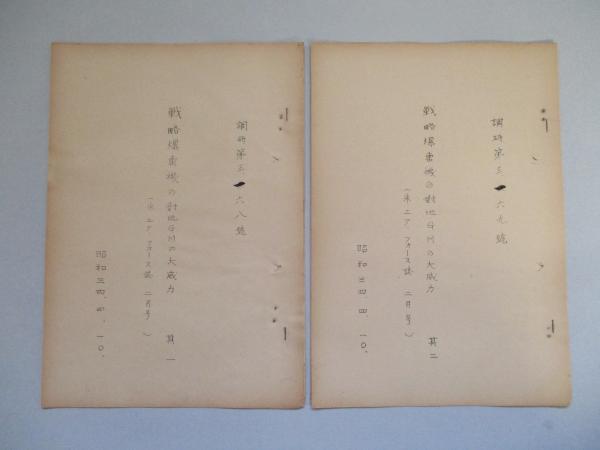 調研第三一六八號
戦略爆撃機の對地GMの大威力 其一
(米エア、フォース誌 二月号)
昭和三四、四、一〇、
調研第三一六九號
戦略爆撃機の對地GMの大威力 其二
(米エア、フォース誌 二月号)
昭和三四、四、一〇、